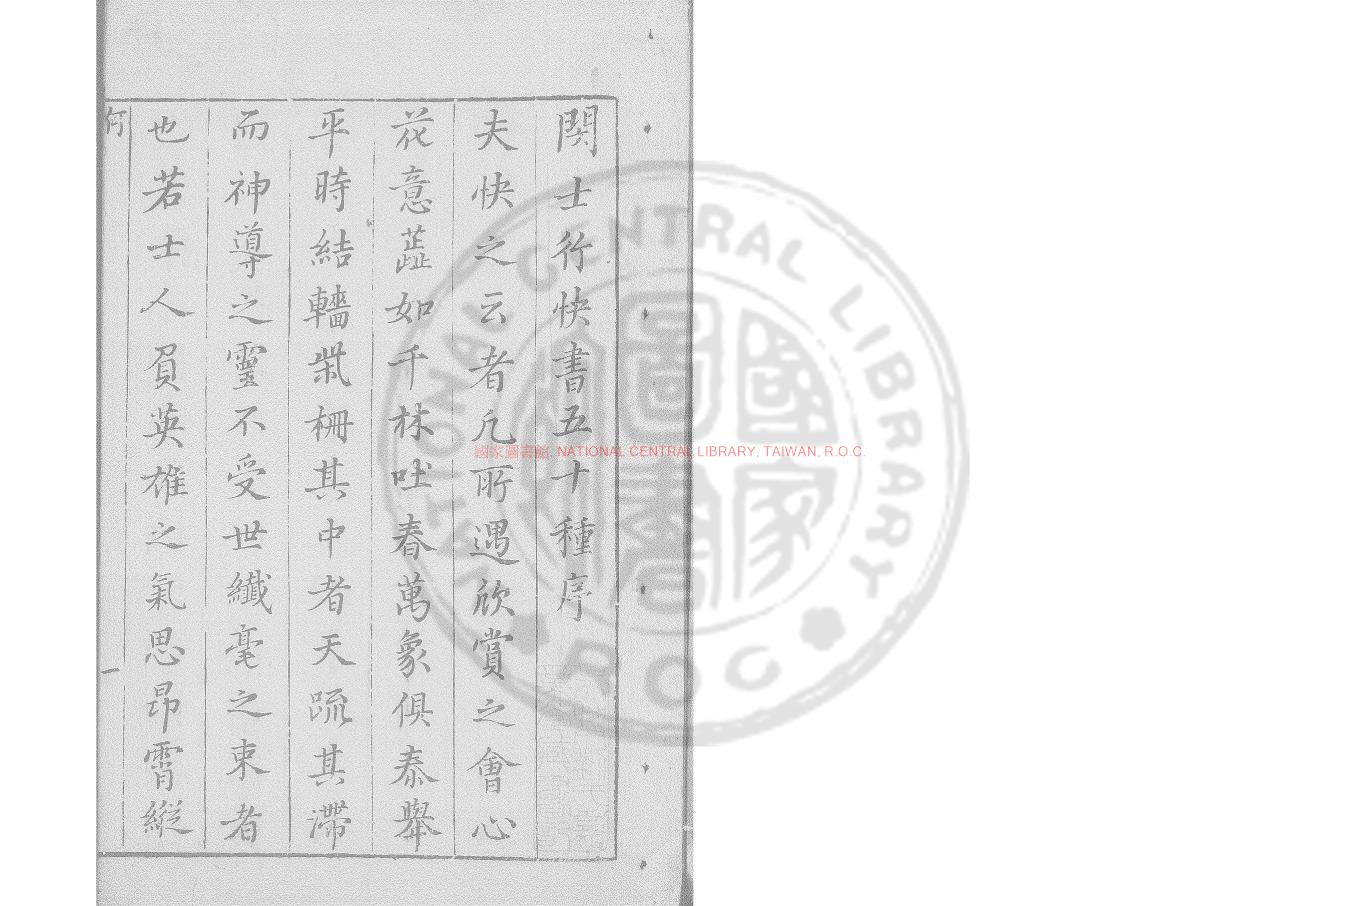 閔士行快書五十種序
夫快之云者凡所遇欣賞之會心
花意蘂如千林吐春萬象俱泰舉
平時結轖柴柵其中者天疏其滯
而神導之靈不受世纖毫之束者
也若士人負英雄之氣思昂霄縱
何
一
國家圖書館, NATIONAL CENTRAL LIBRARY, TAIWAN, R.O.C.
NATIONAL CENTRAL LIBRARY
ROC
國家圖書